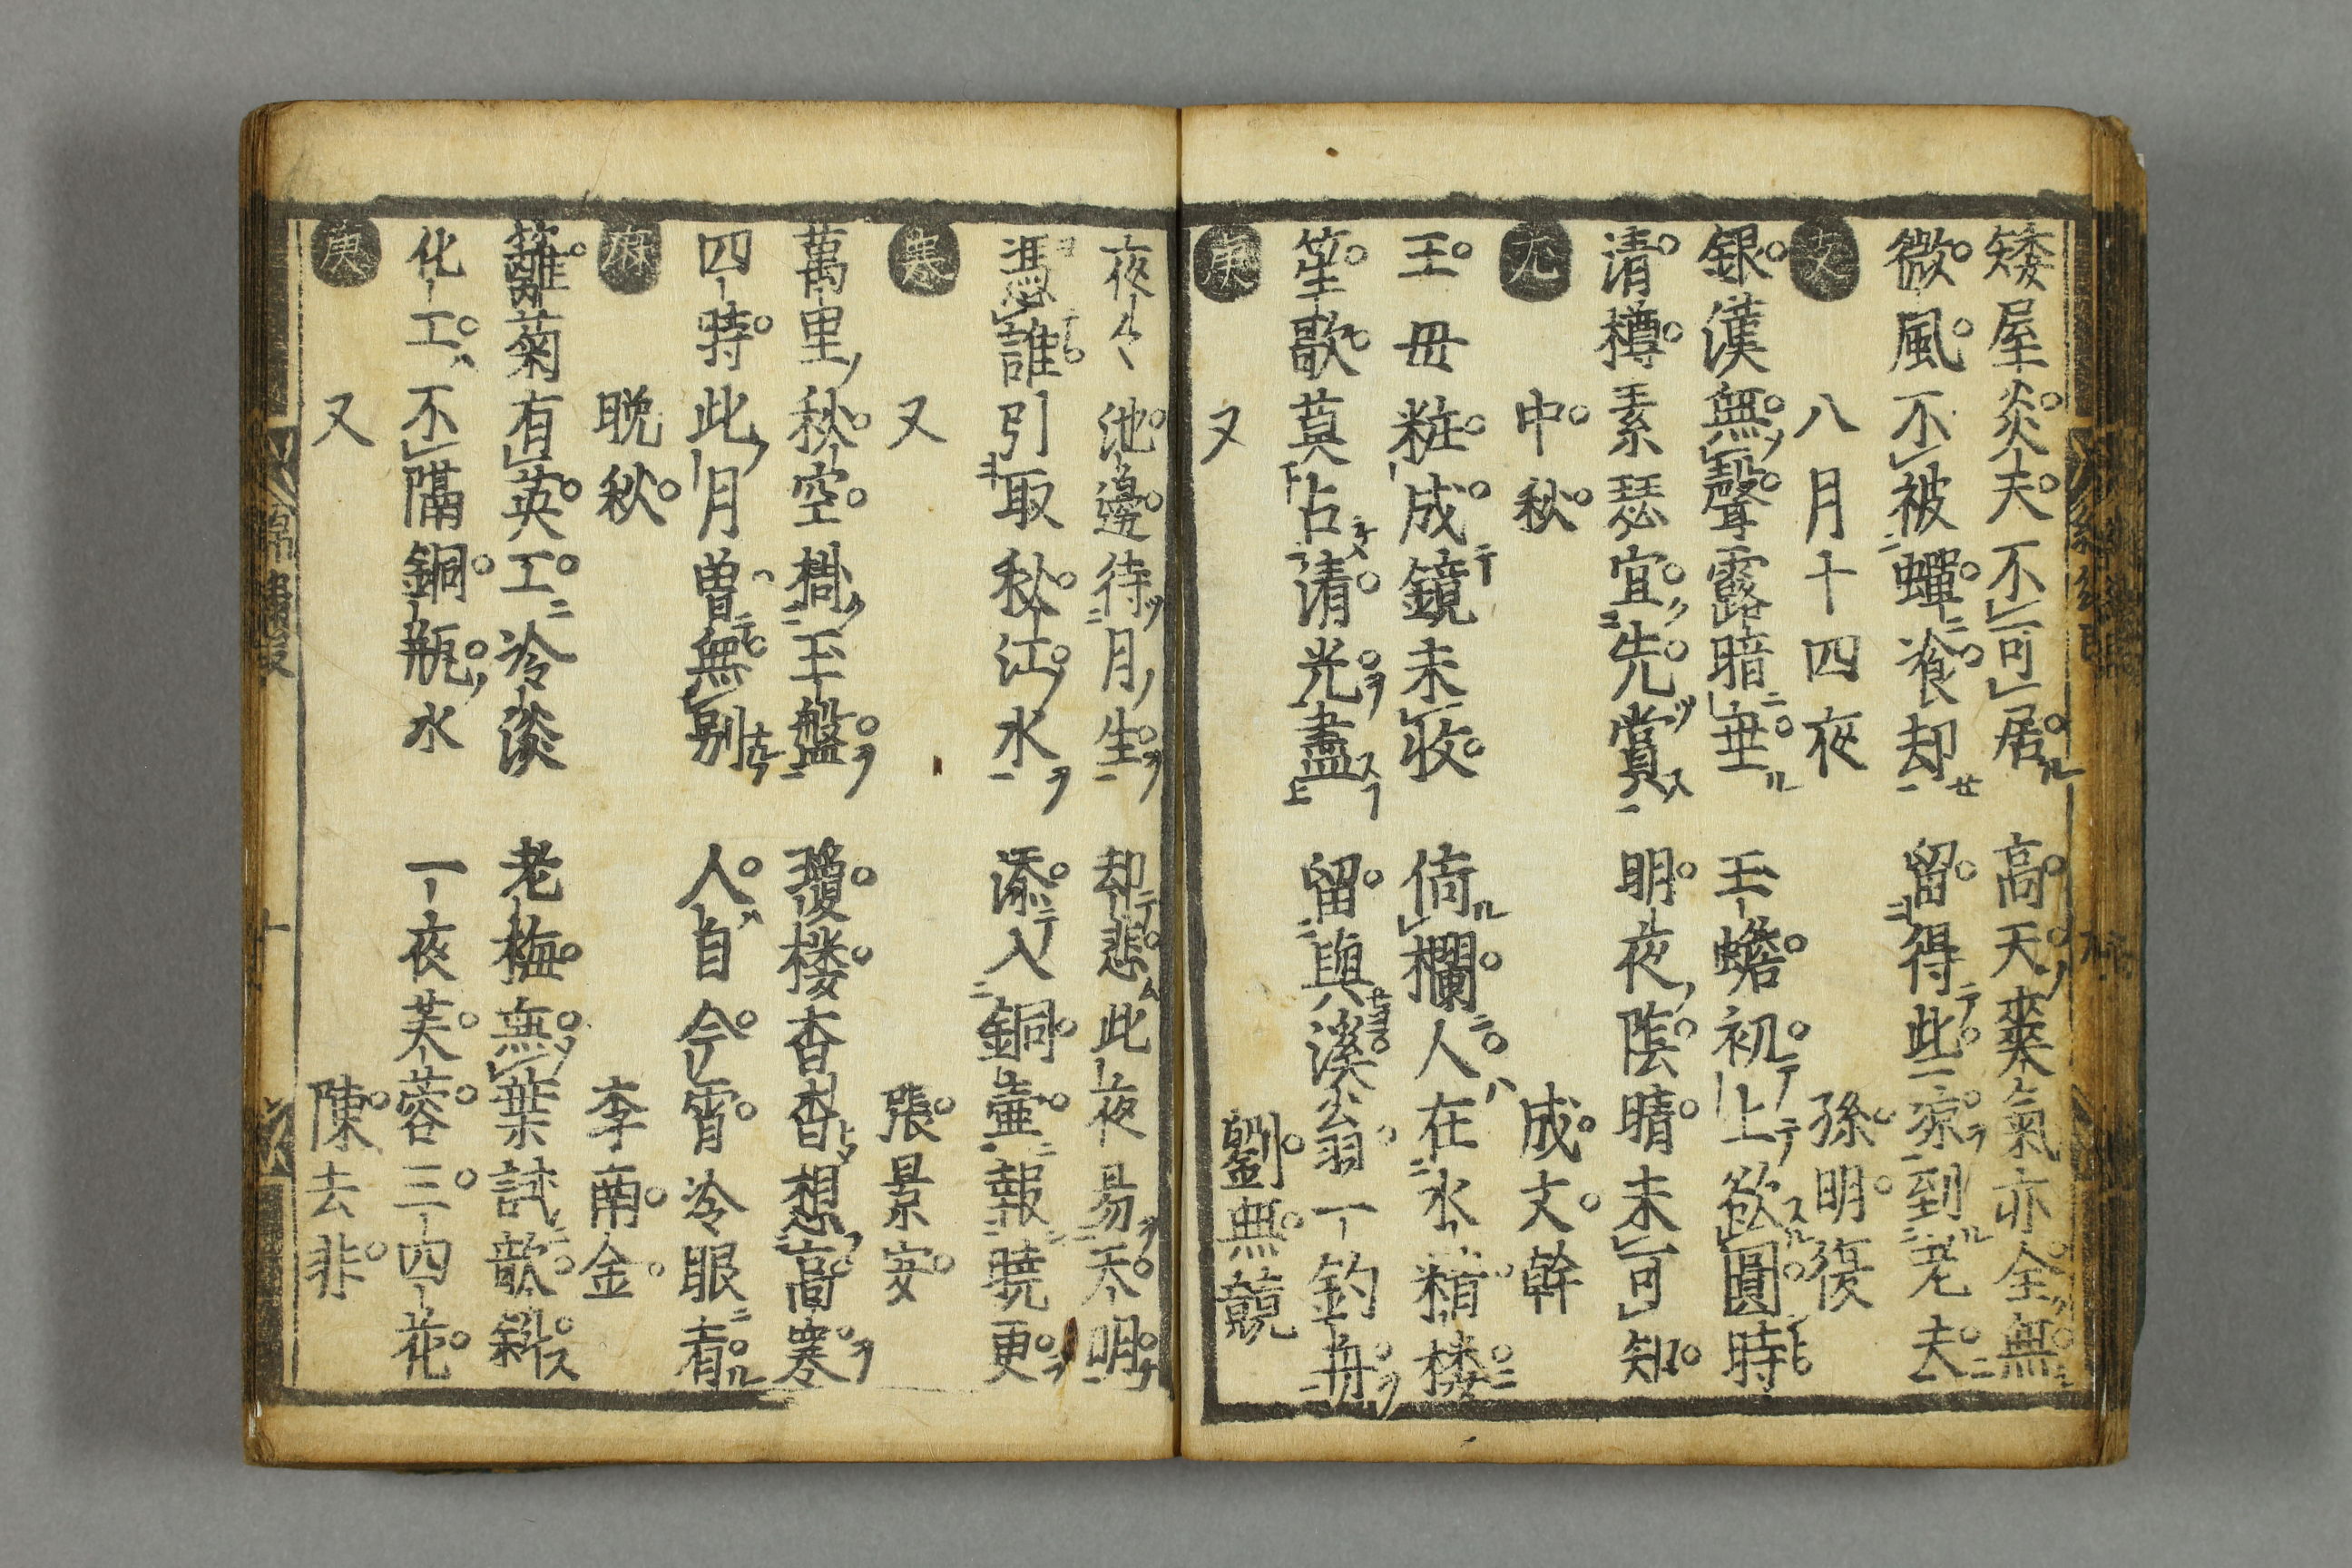 矮屋炎夫不可居 高天爽氣亦全無
微風不被蟬飡却 留得此凉到老夫
支 八月十四夜 孫明復
銀漢無聲露暗垂 玉蟾初上欲圓時
清樽素瑟宜先賞 明夜陰晴未可知
尤 中秋 成文幹
王母粧成鏡未收 倚欄人在水精楼
笙歌莫占清光盡 留與溪翁一釣舟
庚 又 劉無競
夜〻池邊待月生 却悲此夜易天明
憑誰引取秋江水 添入銅壷報曉更
寒 又 張景安
萬里秋空掛玉盤 瓊楼杳杳想高寒
四時此月曽無別 人自今宵冷眼看
麻 晩秋 李南金
籬菊有英工冷淡 老梅無葉試歆斜
化工不隔銅瓶水 一夜芙蓉三四花
庚 又 陳去非